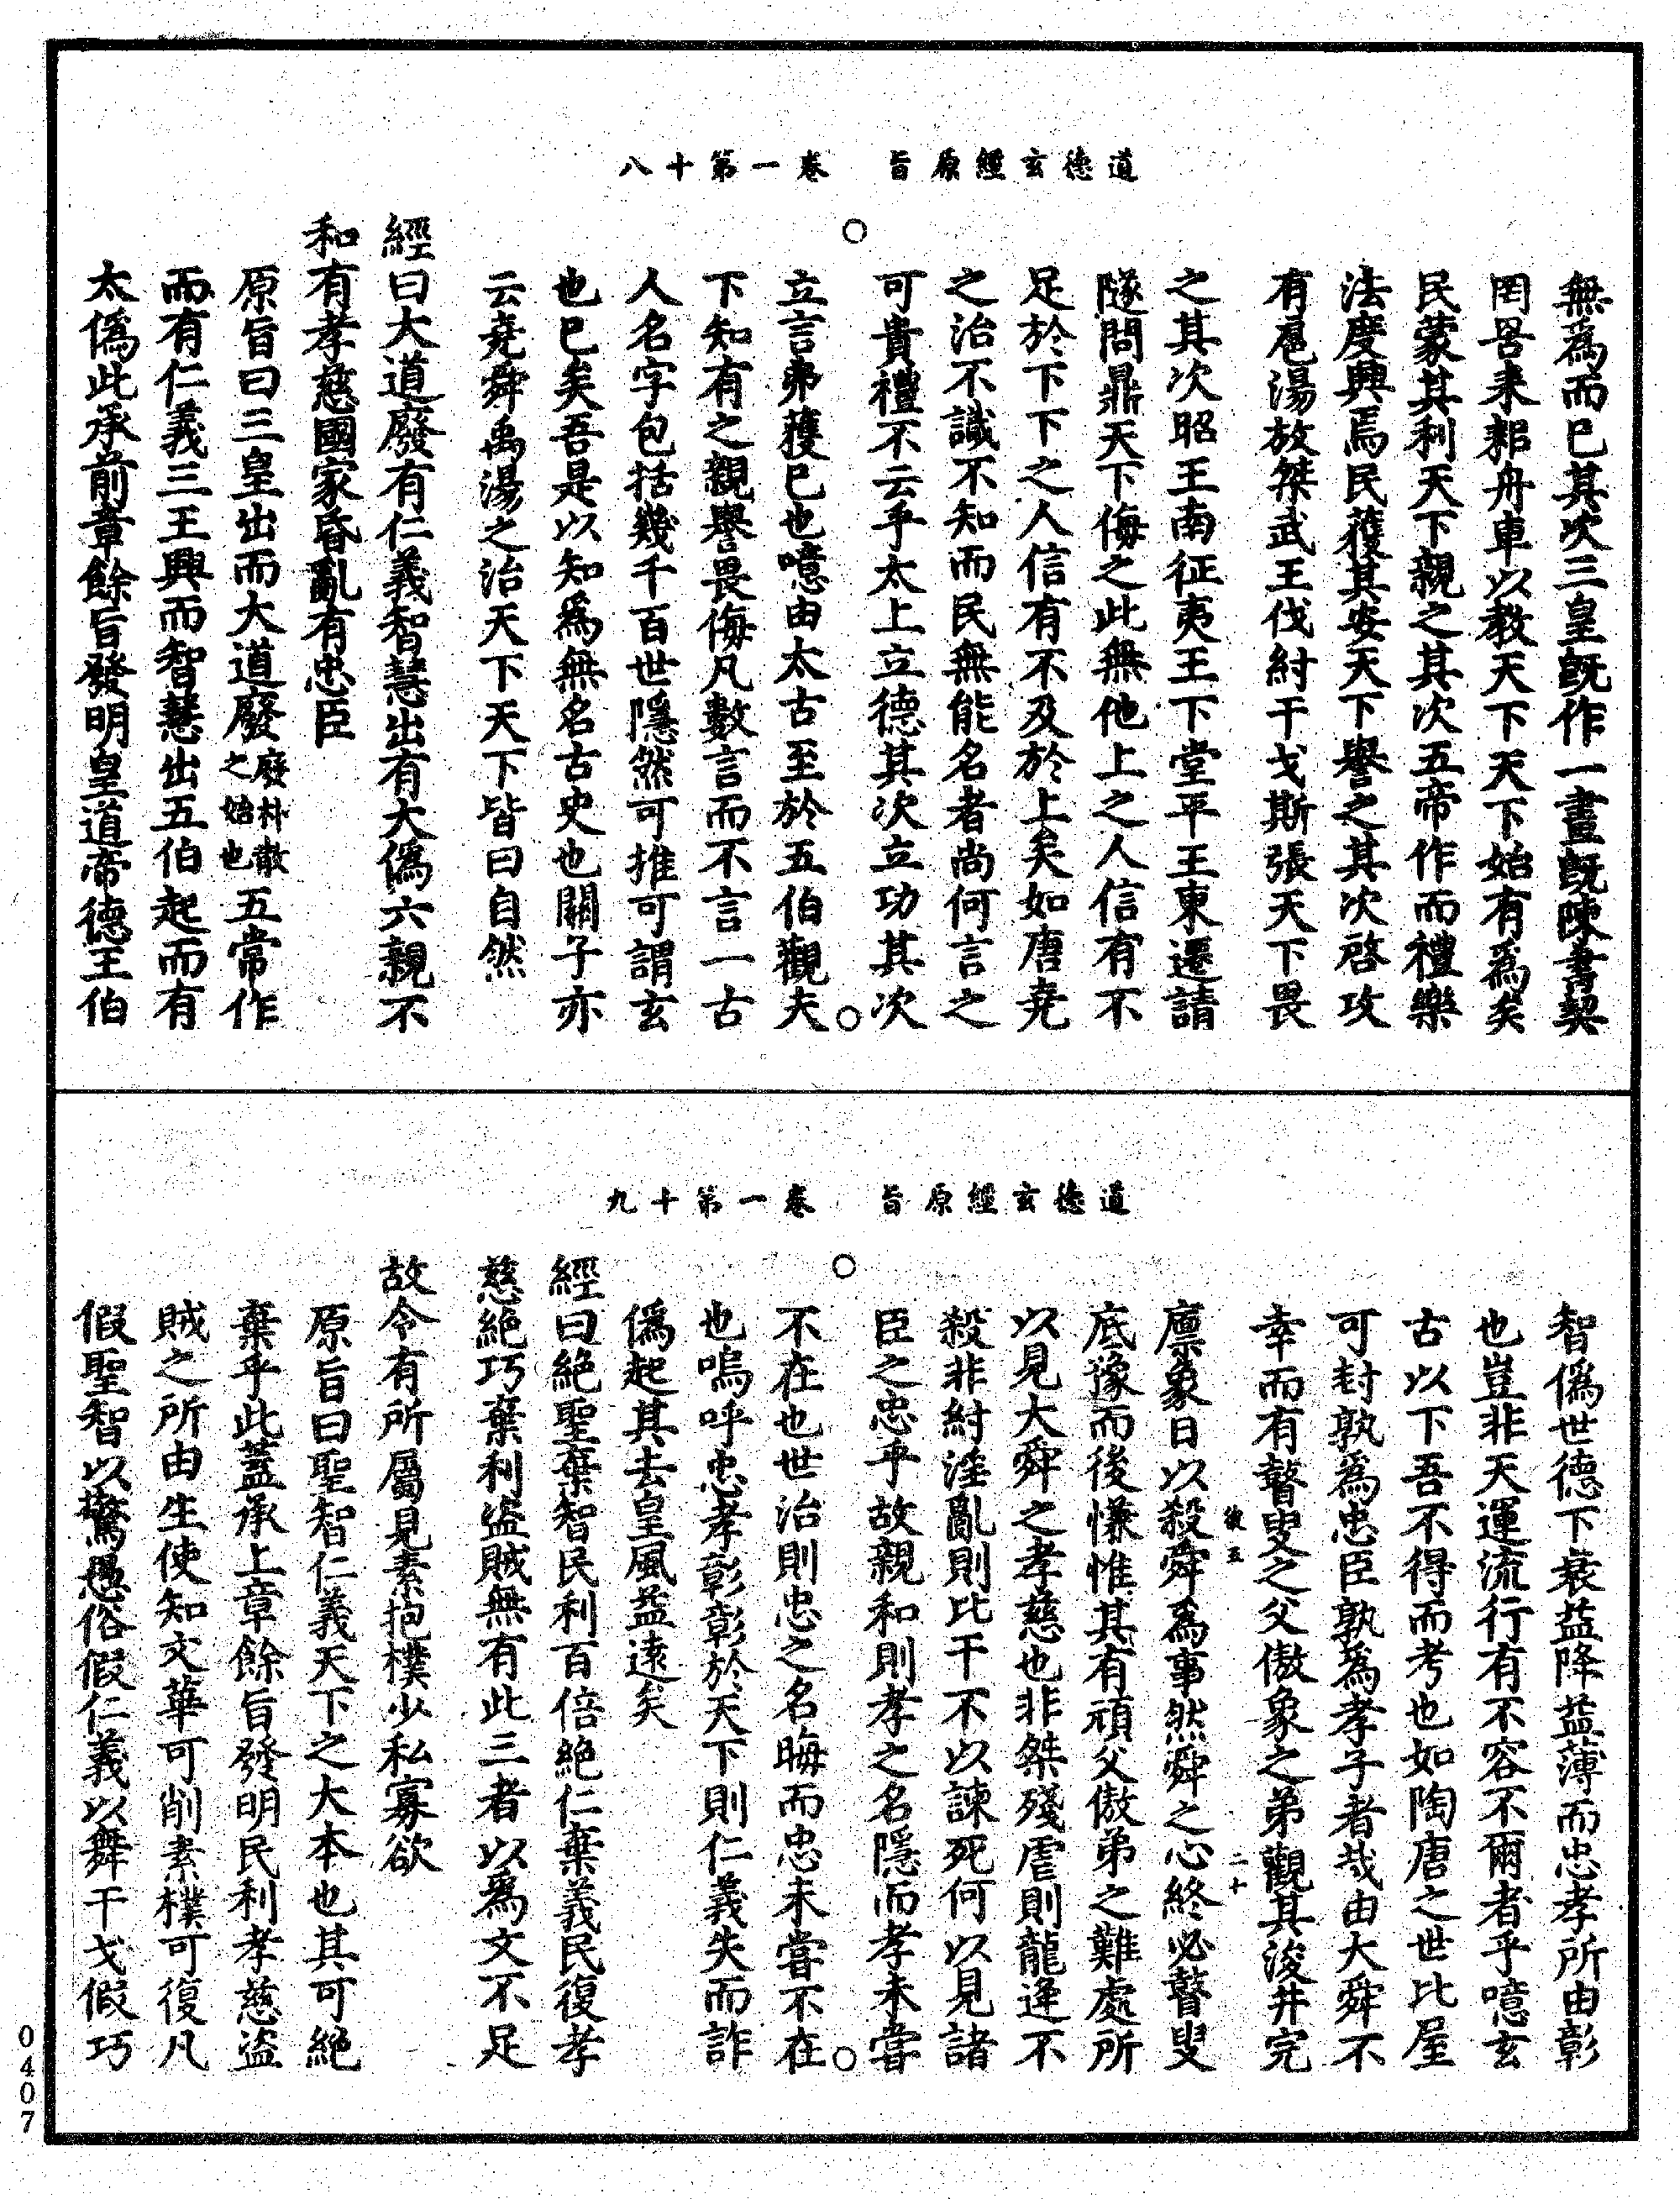 道德玄經原旨　卷一第十八
無爲而已其次三皇旣作一畫旣陳書契
罔罟耒耜舟車以教天下天下始有爲矣
民蒙其利天下親之其次五帝作而禮樂
法度興焉民蒦其安天下譽之其次啓攻
有扈湯放桀武王伐紂干戈斯張天下畏
之其次昭王南征夷王下堂平王東遷請
隧問鼎天下侮之此無他上之人信有不
足於下下之人信有不及於上矣如唐堯
之治不識不知而民無能名者尚何言之
可貴禮不云乎太上立德其次立功其次
立言弗蒦已也噫由太古至於五伯觀夫
下知有之親譽畏侮凡數言而不言一古
人名字包括幾千百世隱然可推可謂玄
也已矣吾是以知爲無名古史也關子亦
云堯舜禹湯之治天下天下皆曰自然
經曰大道廢有仁義智慧出有大僞六親不
和有孝慈國家昏亂有忠臣
原旨曰三皇出而大道廢廢朴散之始也五常作
而有仁義三王興而智慧出五伯起而有
太僞此承前章餘旨發明皇道帝德王伯
道德玄經原旨　卷一第十九
智僞世德下衰益降益薄而忠孝所由彰
也豈非天運流行有不容不爾者乎噫玄
古以下吾不得而考也如陶唐之世比屋
可封孰爲忠臣孰爲孝子者哉由大舜不
幸而有瞽叟之父傲象之弟觀其浚井完
彼五　二十
廪象日以殺舜爲事然舜之心終必瞽叟
底豫而後慊惟其有頑父傲弟之難處所
以見大舜之孝慈也非桀殘虐則龍逄不
殺非紂淫亂則比干不以諫死何以見諸
臣之忠乎故親和則孝之名隱而孝未嘗
不在也世治則忠之名晦而忠未嘗不在
也嗚呼忠孝彰彰於天下則仁義失而詐
僞起其去皇風益遠矣
經曰絕聖棄智民利百倍絕仁棄義民復孝
慈絕巧棄利盜賊無有此三者以爲文不足
故令有所屬見素抱樸少私寡欲
原旨曰聖智仁義天下之大本也其可絕
棄乎此蓋承上章餘旨發明民利孝慈盜
賊之所由生使知文華可削素樸可復凡
假聖智以驚愚俗假仁義以舞干戈假巧
0407